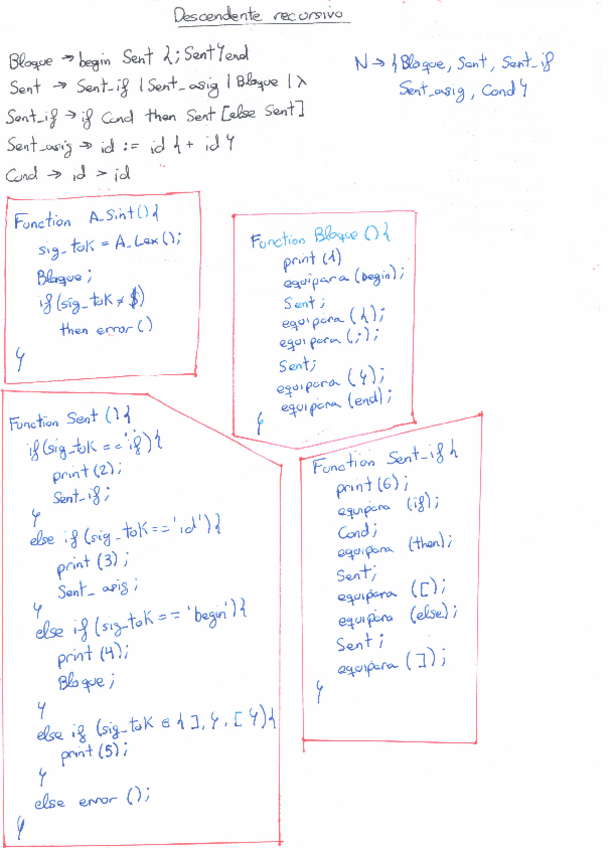 Descendente recursivo
Bloque → begin Sent {; Sent} end
Sent → Sent_if | Sent_asig | Bloque | λ
Sent_if → if Cond then Sent [else Sent]
Sent_asig → id := id { + id }
Cond → id > id
N → {Bloque, Sent, Sent_if
Sent_asig, Cond}
Function A_Sint() {
sig_tok = A_Lex();
Bloque;
if (sig_tok ≠ $)
then error()
}
Function Bloque () {
print (1)
equipara (begin);
Sent;
equipara ({);
equipara (;);
Sent;
equipara (});
equipara (end);
}
Function Sent () {
if (sig_tok == 'if') {
print (2);
Sent_if;
}
else if (sig_tok == 'id') {
print (3);
Sent_asig;
}
else if (sig_tok == 'begin') {
print (4);
Bloque;
}
else if (sig_tok ∈ { ], }, [ }) {
print (5);
}
else error ();
}
Function Sent_if {
print (6);
equipara (if);
Cond;
equipara (then);
Sent;
equipara ([);
equipara (else);
Sent;
equipara (]);
}